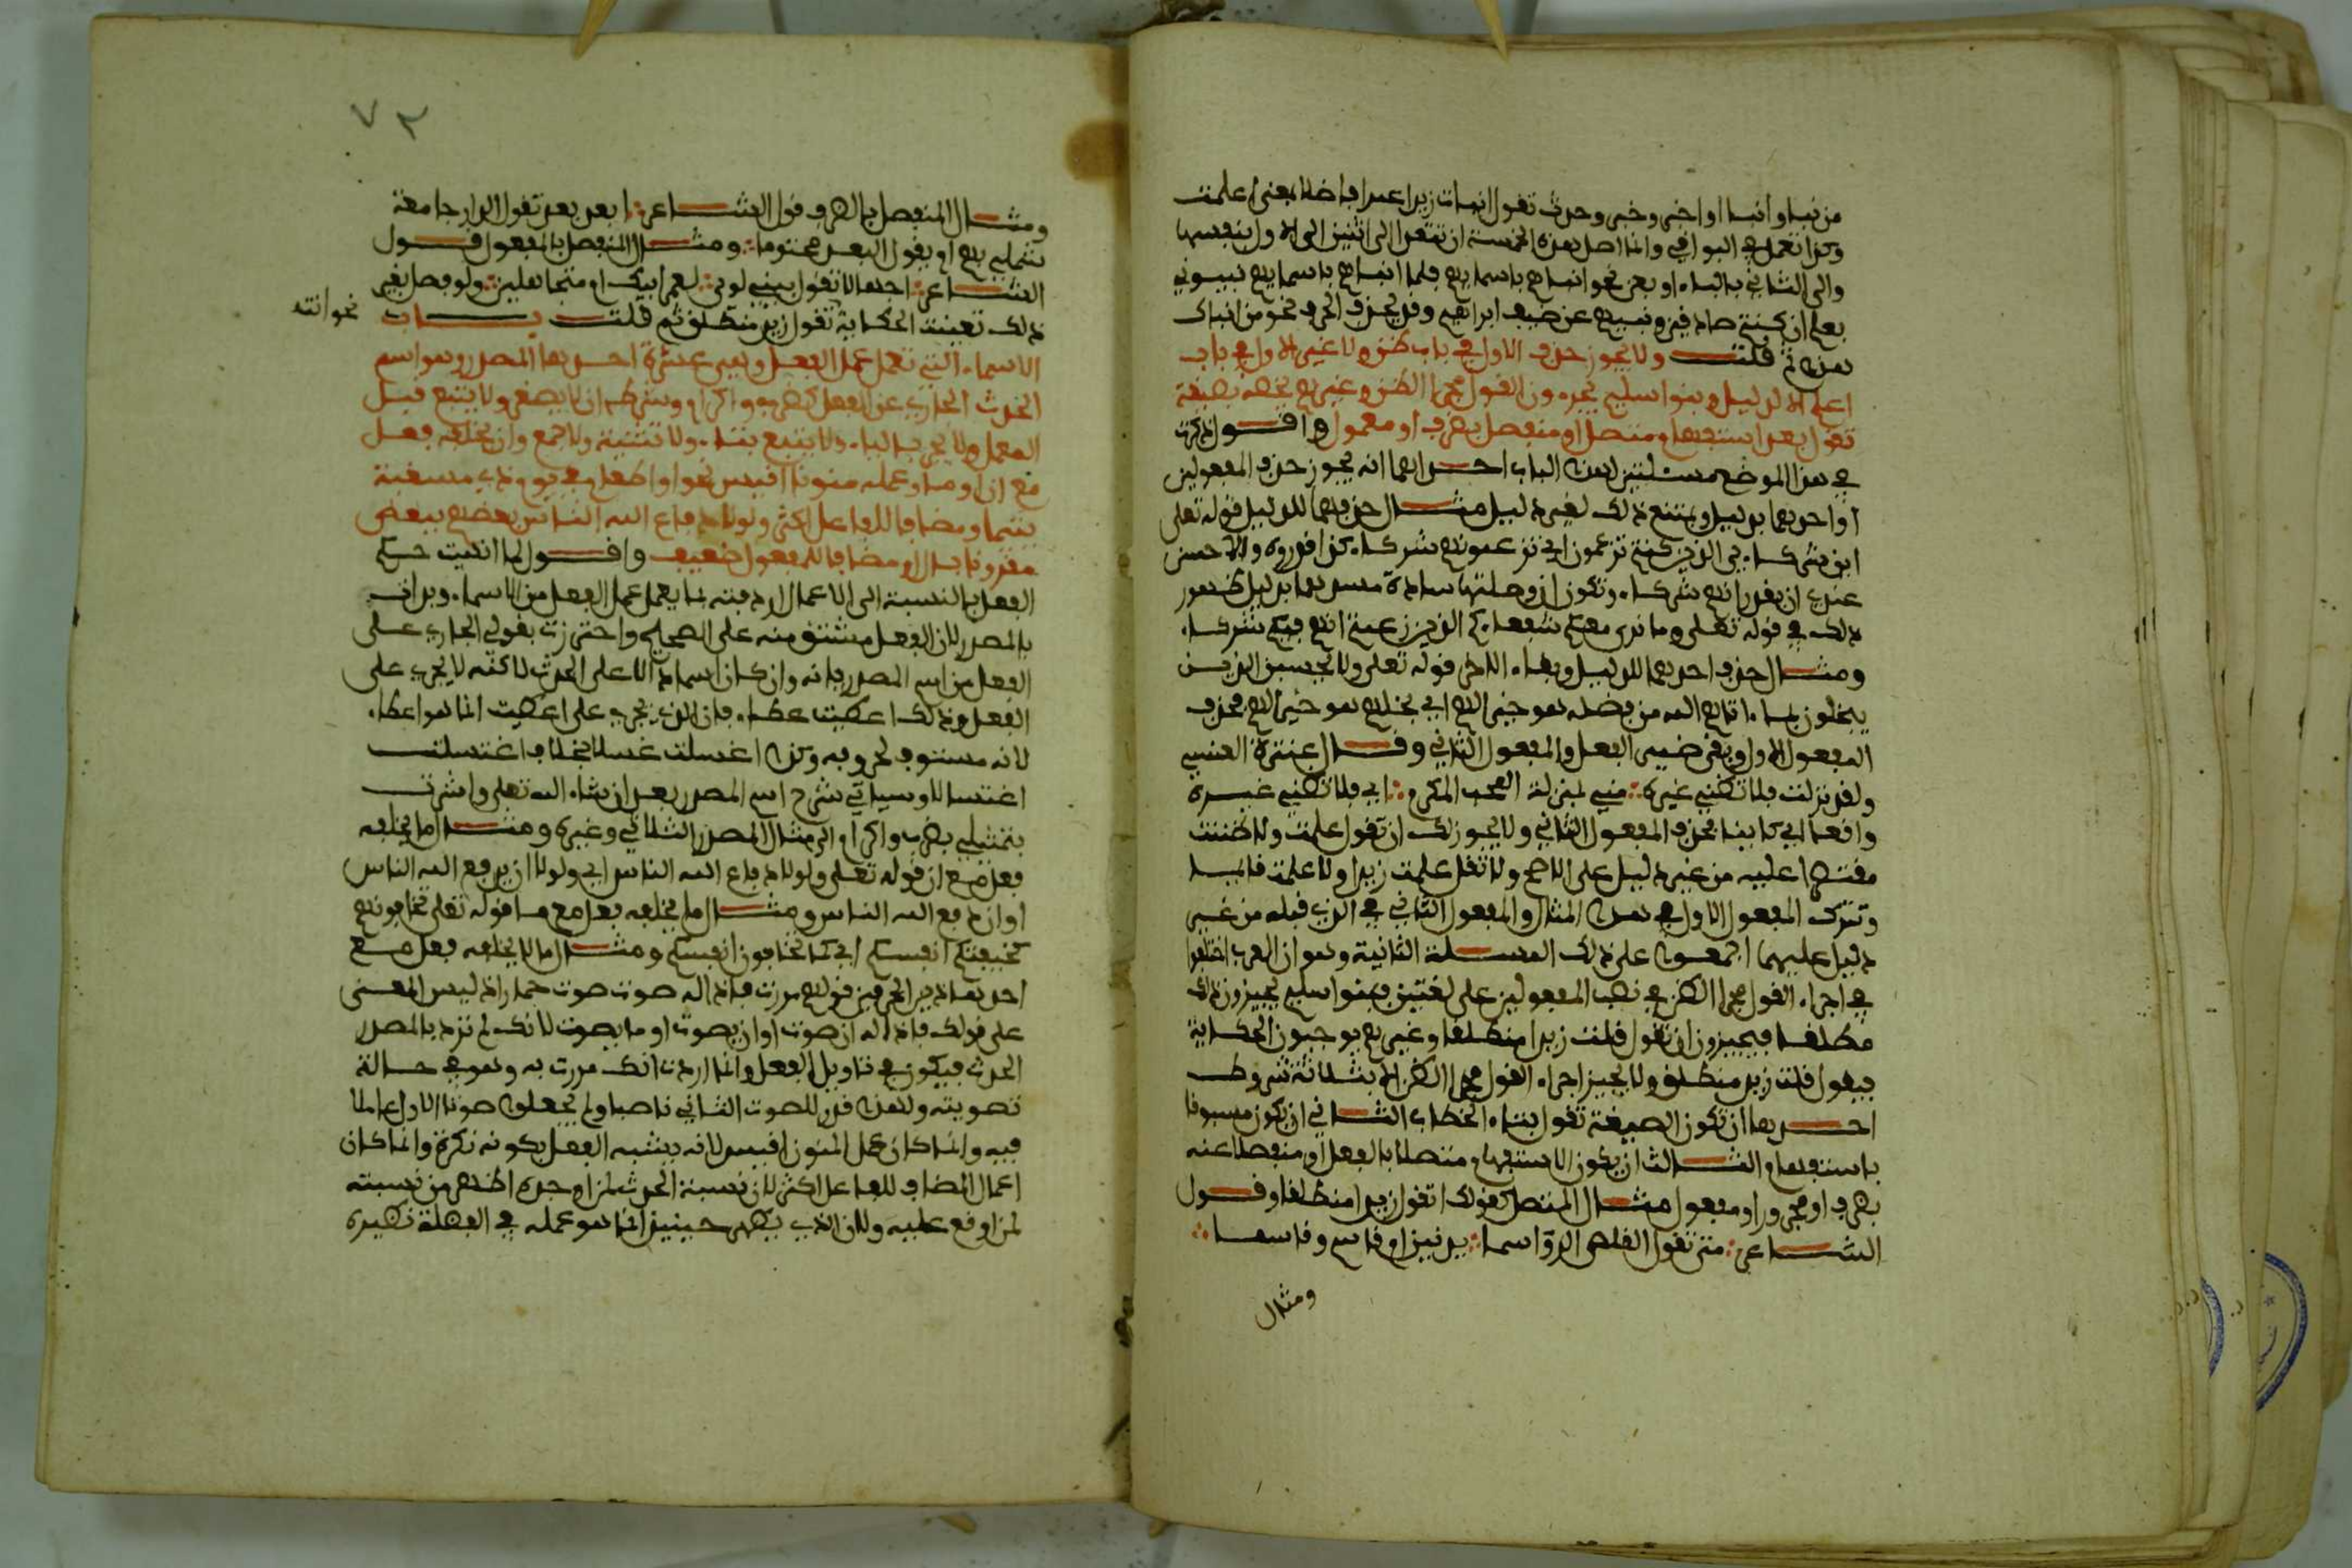 من نبا وانبا واخبر وخبر وحدث تقول انبات زيدا عمرا فاضلا بمعنى اعلمت
وكذا تعمل في البواقي وانما اصل هذه الخمسة ان تتعدا الى اثنين الى الاول بنفسها
والى الثاني بالباء او بعن نحو انبئهم باسمائهم فلما انباهم باسمائهم نبئوني
بعلم ان كنتم صادقين ونبئهم عن ضيف ابراهيم وقد يحذف الحرف نحو من انباك
هذا ثم قلت ولا يجوز حذف الاول في باب ظن ولا غير الاول في باب
اعلم الا لدليل وبنو اسليم يجرون القول مجرا الظن وغيرهم يخصه بصيغة
تقول بعد استفهام متصل او منفصل بظرف او معمول واقول ذكرت
في هذا الموضع مسئلتين لهذا الباب احدايهما انه يجوز حذف المفعولين
او احدهما بدليل ويمتنع ذلك لغير دليل مثال حذفهما للدليل قوله تعلى
اين شركاءي الذين كنتم تزعمون اي تزعمونهم شركاء كذا قدروه والاحسن
عندي ان يقدر انهم شركاء وتكون ان وصلتها سادة مسدهما بدليل ظهور
ذلك في قوله تعلى وما نرى معكم شفعاءكم الذين زعمتم انهم فيكم شركاء
ومثال حذف احدهما للدليل وبقاء الاخر قوله تعلى ولا يحسبن الذين
يبخلون بما اتاهم الله من فضله هو خيرا لهم اي بخلهم هو خيرا لهم فحذف
المفعول الاول وبقى ضمير الفعل والمفعول الثاني وقال عنترة العبسي
ولقد نزلت فلا تظني غيره ؞ مني بمنزلة المحب المكرم ؞ اي فلا تظني غيره
واقعا اي كاينا فحذف المفعول الثاني ولا يجوز لك ان تقول علمت ولا ظننت
مقتصرا عليه من غير دليل على الاصح ولا تقل علمت زيدا ولا علمت قائما
وتترك المفعول الاول في هذا المثال والمفعول الثاني في الذي قبله من غير
دليل عليهما اجمعوا على ذلك المسئلة الثانية وهو ان العرب اختلفوا
في اجراء القول مجرا الظن في نصب المفعولين على لغتين فبنوا سليم يجيزون ذلك
مطلقا فيجيزون ان تقول قلت زيدا منطلقا وغيرهم يوجبون الحكاية
فيقول قلت زيد منطلق ولا يجيز اجراء القول مجرا الظن الا بثلاثة شروط
احدها ان تكون الصيغة تقول بتاء الخطاب الثاني ان يكون مسبوقا
باستفهام الثالث ان يكون الاستفهام متصلا بالفعل او منفصلا عنه
بظرف او مجرور او مفعول مثال المتصل كقولك اتقول زيدا منطلقا وقول
الشاعر ؞ متى تقول القلص الرواسما ؞ يدنين ام قاسم وقاسما ؞
ومثال
٧٣
ومثال المنفصل بالظرف قول الشاعر ؞ ابعد بعد تقول الدار جامعة
شملي بهم ام يقول البعد محتوما ؞ ومثال المنفصل بالمفعول قول
الشاعر ؞ اجهالا تقول بني لوي ؞ لعمر ابيك ام متجاهلين ؞ ولو فصل بغير
ذلك تعينت الحكاية تقول زيد منطلق ثم قلت باب
نحو انته
الاسماء التي تعمل عمل الفعل وهي عشرة احدها المصدر وهو اسم
الحدث الجاري على الفعل كضرب واكرام وشرطه ان لا يصغر ولا يتبع قبل
العمل ولا يحد بالتاء ولا يتبع بتاء ولا تثنية ولا جمع وان يخلفه فعل
مع ان او ما وعمله منونا اقيس نحو او اطعام في يوم ذي مسغبة
يتيما ومضافا للفاعل اكثر ولولا دفاع الله الناس بعضهم ببعض
مقرونا بال او مضافا للمفعول ضعيف واقول لما انهيت حكم
الفعل بالنسبة الى الاعمال اردفته بما يعمل عمل الفعل من الاسماء وبدات
بالمصدر لان الفعل مشتق منه على الصحيح واحترزت بقولي الجاري على
الفعل من اسم المصدر فانه وان كان اسما دالا على الحدث لاكنه لا يجري على
الفعل وذلك اعطيت عطاء فان الذي يجري على اعطيت انما هو اعطاء
لانه مستوف لحروفه وكذا اغتسلت غسلا بخلاف اغتسلت
اغتسالا وسياتي شرح اسم المصدر بعد ان شاء الله تعلى واشرت
بتمثيلي بضرب واكرام الى مثال المصدر الثلاثي وغيره ومثال ما يخلفه
فعل مع ان قوله تعلى ولولا دفاع الله الناس اي ولولا ان يدفع الله الناس
او ان دفع الله الناس ومثال ما يخلفه فعل مع ما قوله تعلى تخافونهم
كخيفتكم انفسكم اي كما تخافون انفسكم ومثال ما لا يخلفه فعل مع
احد هاذين الحرفين قولهم مررت فاذا له صوت صوت حمار اذ ليس المعنى
على قولك فاذا له ان صوت او ان يصوت او ما يصوت لانك لم ترد بالمصدر
الحدث فيكون في تاويل الفعل وانما اردت انك مررت به وهو في حالة
تصويته ولهذا قدر للصوت الثاني ناصبا ولم يجعلوا صوتا الاول عاملا
فيه وانما كان عمل المنون اقيس لانه يشبه الفعل بكونه نكرة وانما كان
اعمال المضاف للفاعل اكثر لان نسبة الحدث لمن اوجده اظهر من نسبته
لمن اوقع عليه ولان الذي يظهر حينئذ انما هو عمله في الفضلة نظيره